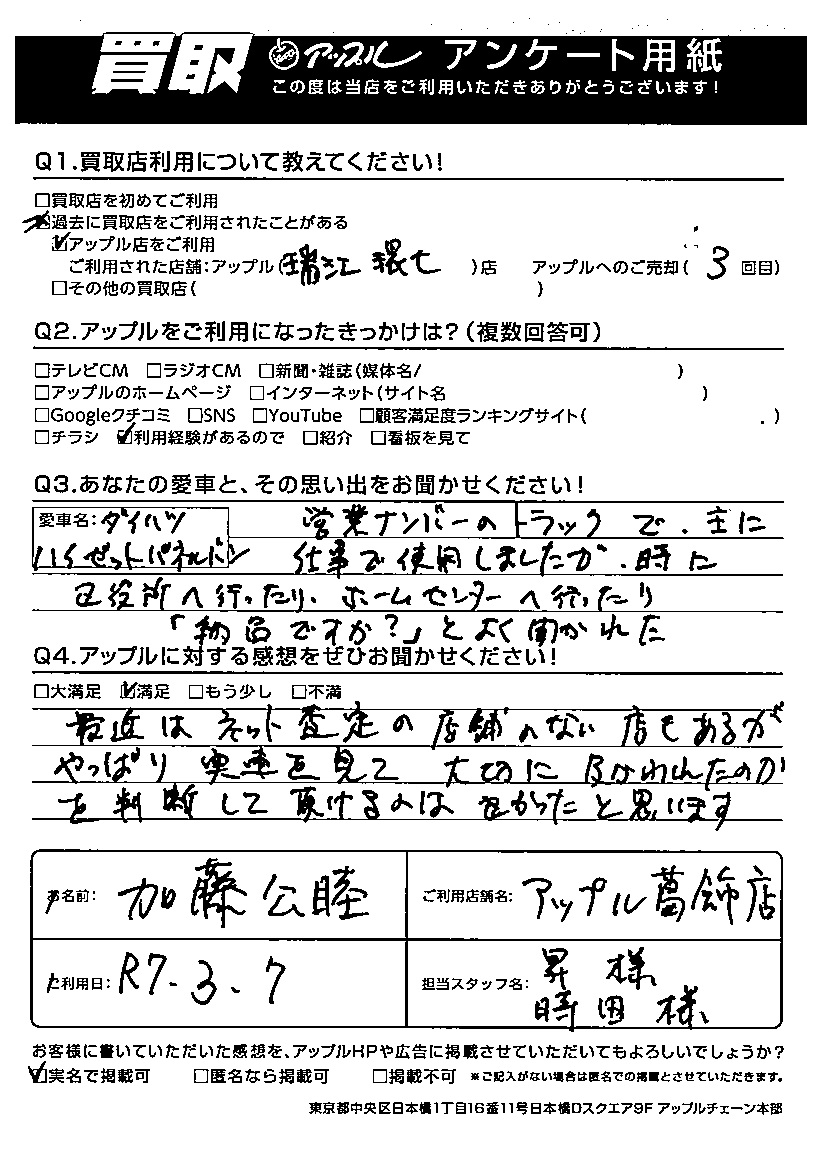 買取 アップル アンケート用紙
この度は当店をご利用いただきありがとうございます！
Q1.買取店利用について教えてください！
□買取店を初めてご利用
☑過去に買取店をご利用されたことがある
☑アップル店をご利用
ご利用された店舗：アップル（瑞江 環七）店 アップルへのご売却（3回目）
□その他の買取店（ ）
Q2.アップルをご利用になったきっかけは？（複数回答可）
□テレビCM □ラジオCM □新聞・雑誌（媒体名/ ）
□アップルのホームページ □インターネット（サイト名 ）
□Googleクチコミ □SNS □YouTube □顧客満足度ランキングサイト（ ）
□チラシ ☑利用経験があるので □紹介 □看板を見て
Q3.あなたの愛車と、その思い出をお聞かせください！
愛車名：ダイハツ 営業ナンバーのトラックで、主に
ハイゼットパネルバン 仕事で使用しましたが、時に
区役所へ行ったり、ホームセンターへ行ったり
「納品ですか？」とよく聞かれた
Q4.アップルに対する感想をぜひお聞かせください！
□大満足 ☑満足 □もう少し □不満
最近はネット査定の店舗のない店もあるが
やっぱり実車を見て 大切に われたのか
を判断して頂けるのは 良かったと思います
お名前： 加藤公睦 ご利用店舗名： アップル葛飾店
ご利用日： R7.3.7 担当スタッフ名： 昇様、
時田様、
お客様に書いていただいた感想を、アップルHPや広告に掲載させていただいてもよろしいでしょうか？
☑実名で掲載可 □匿名なら掲載可 □掲載不可 ※ご記入がない場合は匿名での掲載とさせていただきます。
東京都中央区日本橋1丁目16番11号日本橋Dスクエア9F アップルチェーン本部